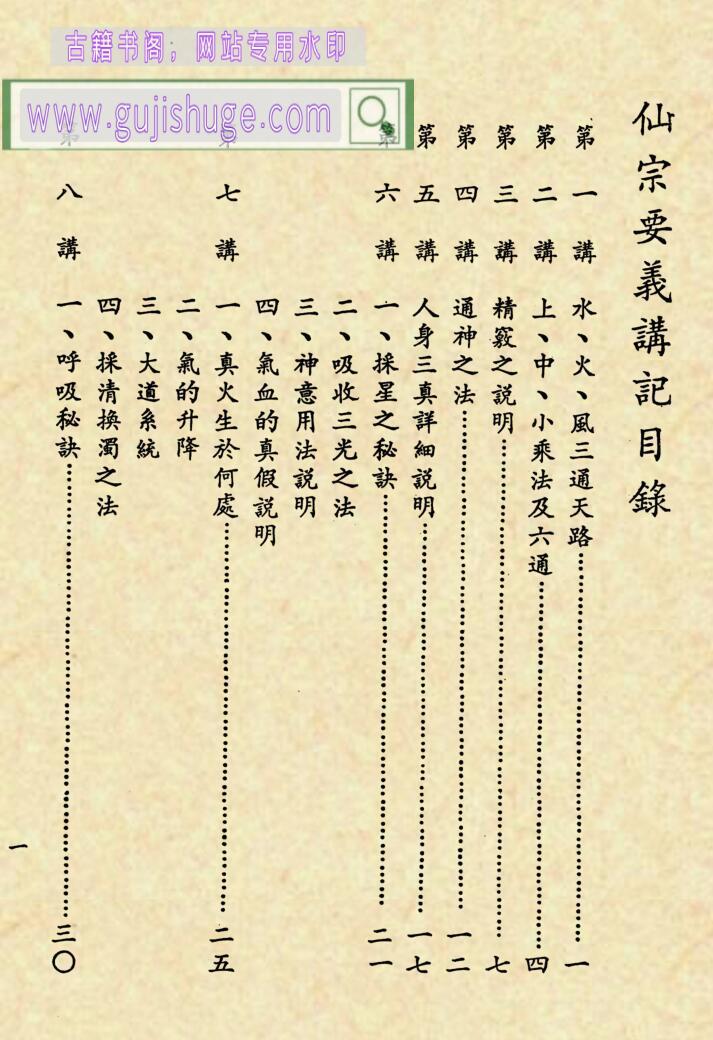 古籍书阁；网站专用水印
www.gujishuge.com
仙宗要義講記目錄
第一講 水、火、風三通天路……一
第二講 上、中、小乘法及六通……四
第三講 精竅之説明……七
第四講 通神之法……一二
第五講 人身三真詳細説明……一七
第六講 一、採星之秘訣……二一
二、吸收三光之法
三、神意用法説明
四、氣血的真假説明
第七講 一、真火生於何處……二五
二、氣的升降
三、大道系統
四、採清換濁之法
第八講 一、呼吸秘訣……三〇
一